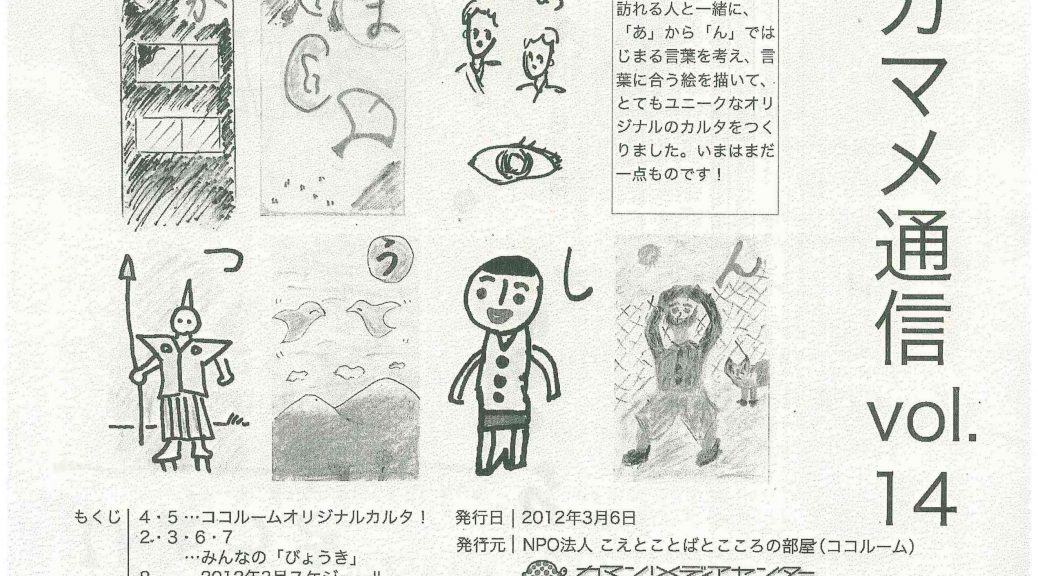 訪れる人と一緒に、
「あ」から「ん」では
じまる言葉を考え、言
葉に合う絵を描いて、
とてもユニークなオリ
ジナルのカルタをつく
りました。いまはまだ
一点ものです！
カマメ通信
vol.
14
つ
う
し
ん
もくじ
4・5…ココルームオリジナルカルタ！
2・3・6・7
…みんなの「びょうき」
発行日｜2012年3月6日
発行元｜NPO法人 こえとことばとこころの部屋（ココルーム）
カマン！メディアセンター